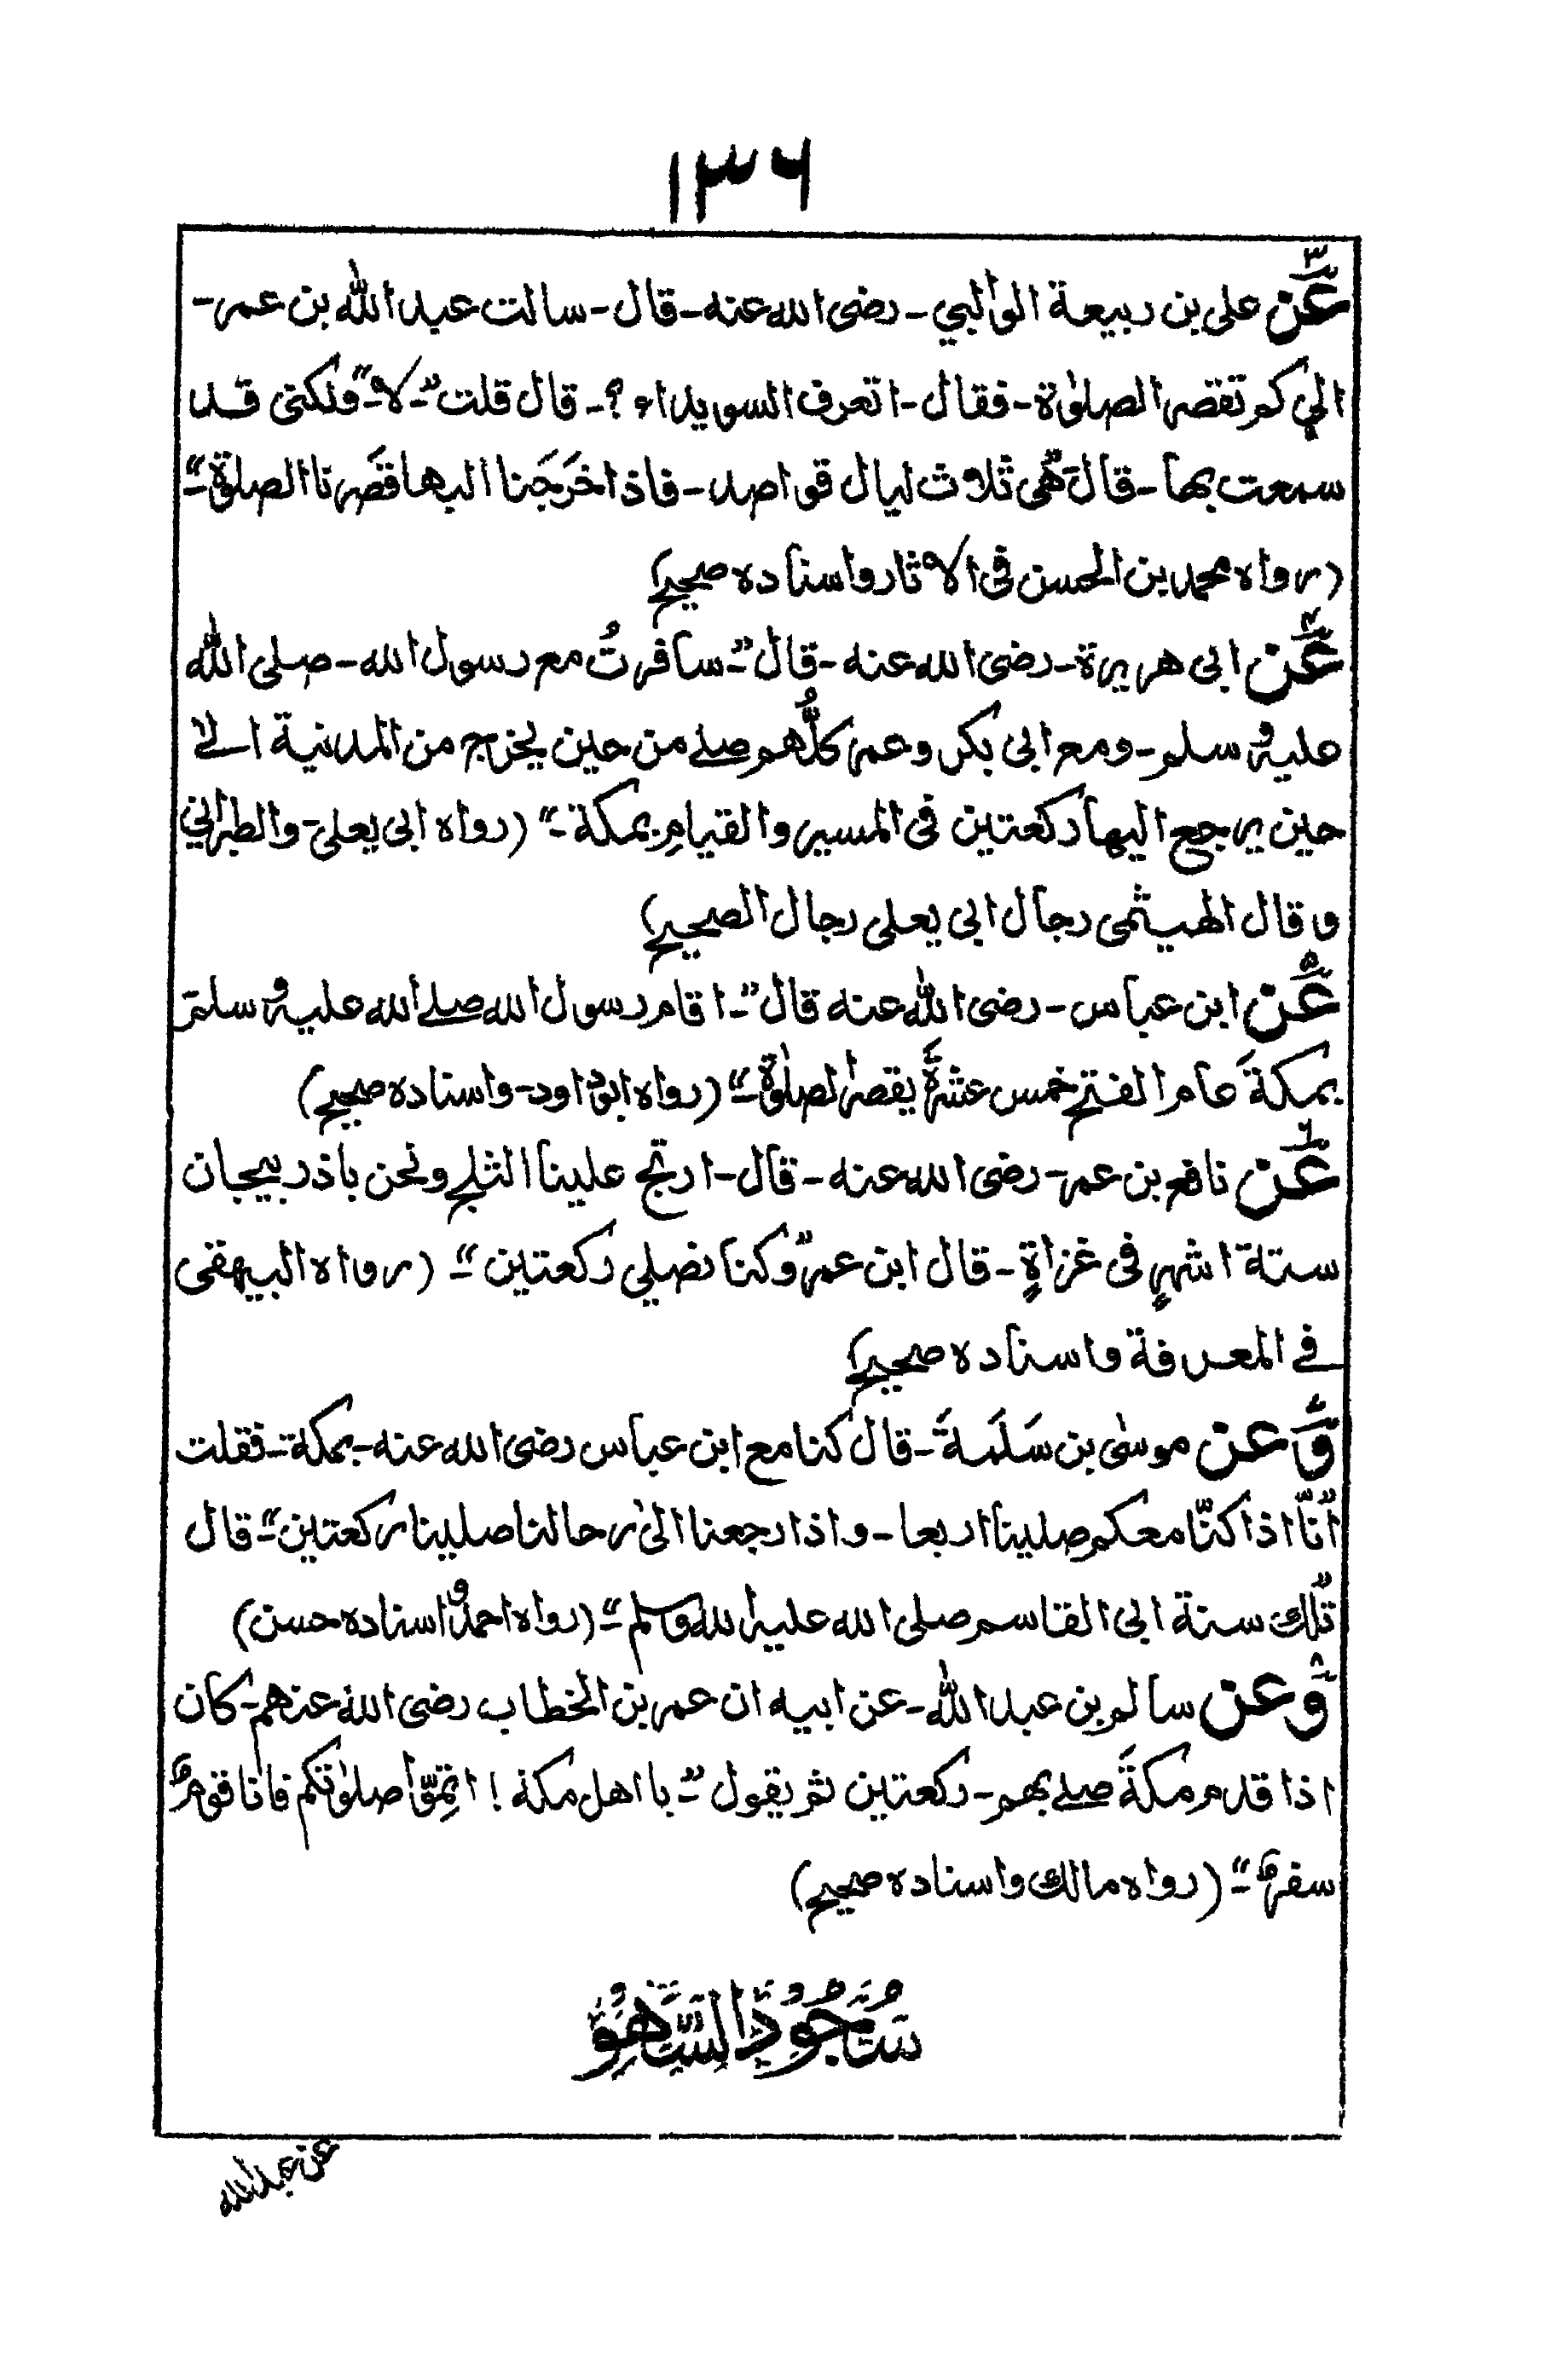 ۱۳۶
۳
عَن علی بن ربیعة الوالبي - رضی الله عنه - قال - سالت عبد الله بن عمر -
الي كم تقصر الصلوٰة - فقال - اتعرف السويداء ؟ - قال قلت "- لا -" ولكنی قد
سمعت بها - قال هی ثلاث ليال قواصد - فاذا خَرَجَنا اليها قصَرنا الصلوٰة -"
(رواه محمد بن الحسن فی الاثار واسناده صحیح)
۴
عَن ابی هریرة - رضی الله عنه - قال "- سافرتُ مع رسول الله - صلی الله
علیه وسلم - ومع ابی بکر وعمر كلُّهم صلے من حین یخرج من المدنیة الےٰ
حین یرجع الیها رکعتین فی المسیر والقیامِ بمکة -" (رواه ابی یعلی - والطبراني
وقال الهیثمی رجال ابی یعلی رجال الصحیح)
۵
عَن ابن عباس - رضی الله عنه قال "- اقام رسول الله صلے الله علیه وسلم
بمكةَ عام الفتح خمس عشرةَ يقصر الصلوٰة -" (رواه ابو داود - واسناده صحیح)
۶
عَن نافع بن عمر - رضی الله عنه - قال - ارتج علینا الثلج ونحن باذربیجان
ستة اشهرٍ فی غزاةٍ - قال ابن عمر "وکنا نصلي رکعتین -" (رواه البیهقی
فے المعرفة واسناده صحیح)
۷
وَعن موسیٰ بن سَلَمةَ - قال کنا مع ابن عباس رضی الله عنه - بمکة - فقلت
"انّا اذا کنّا معکم صلینا اربعا - واذا رجعنا الیٰ رحالنا صلینا رکعتین -" قال
"تلك سنة ابی القاسم صلی الله علیه الله وسلم -" (رواه احمد واسناده حسن)
۸
وَعن سالم بن عبد الله - عن ابیه ان عمر بن الخطاب رضی الله عنهم - کان
اذا قدم مکةَ صلے بهم - رکعتین ثم یقول "- یا اهل مکة ! اتِمّوا صلوٰتکم فانا قومٌ
سفرٌ -" (رواه مالك واسناده صحیح)
سُجُوْدُ السَّهْوِ
عن عبد الله